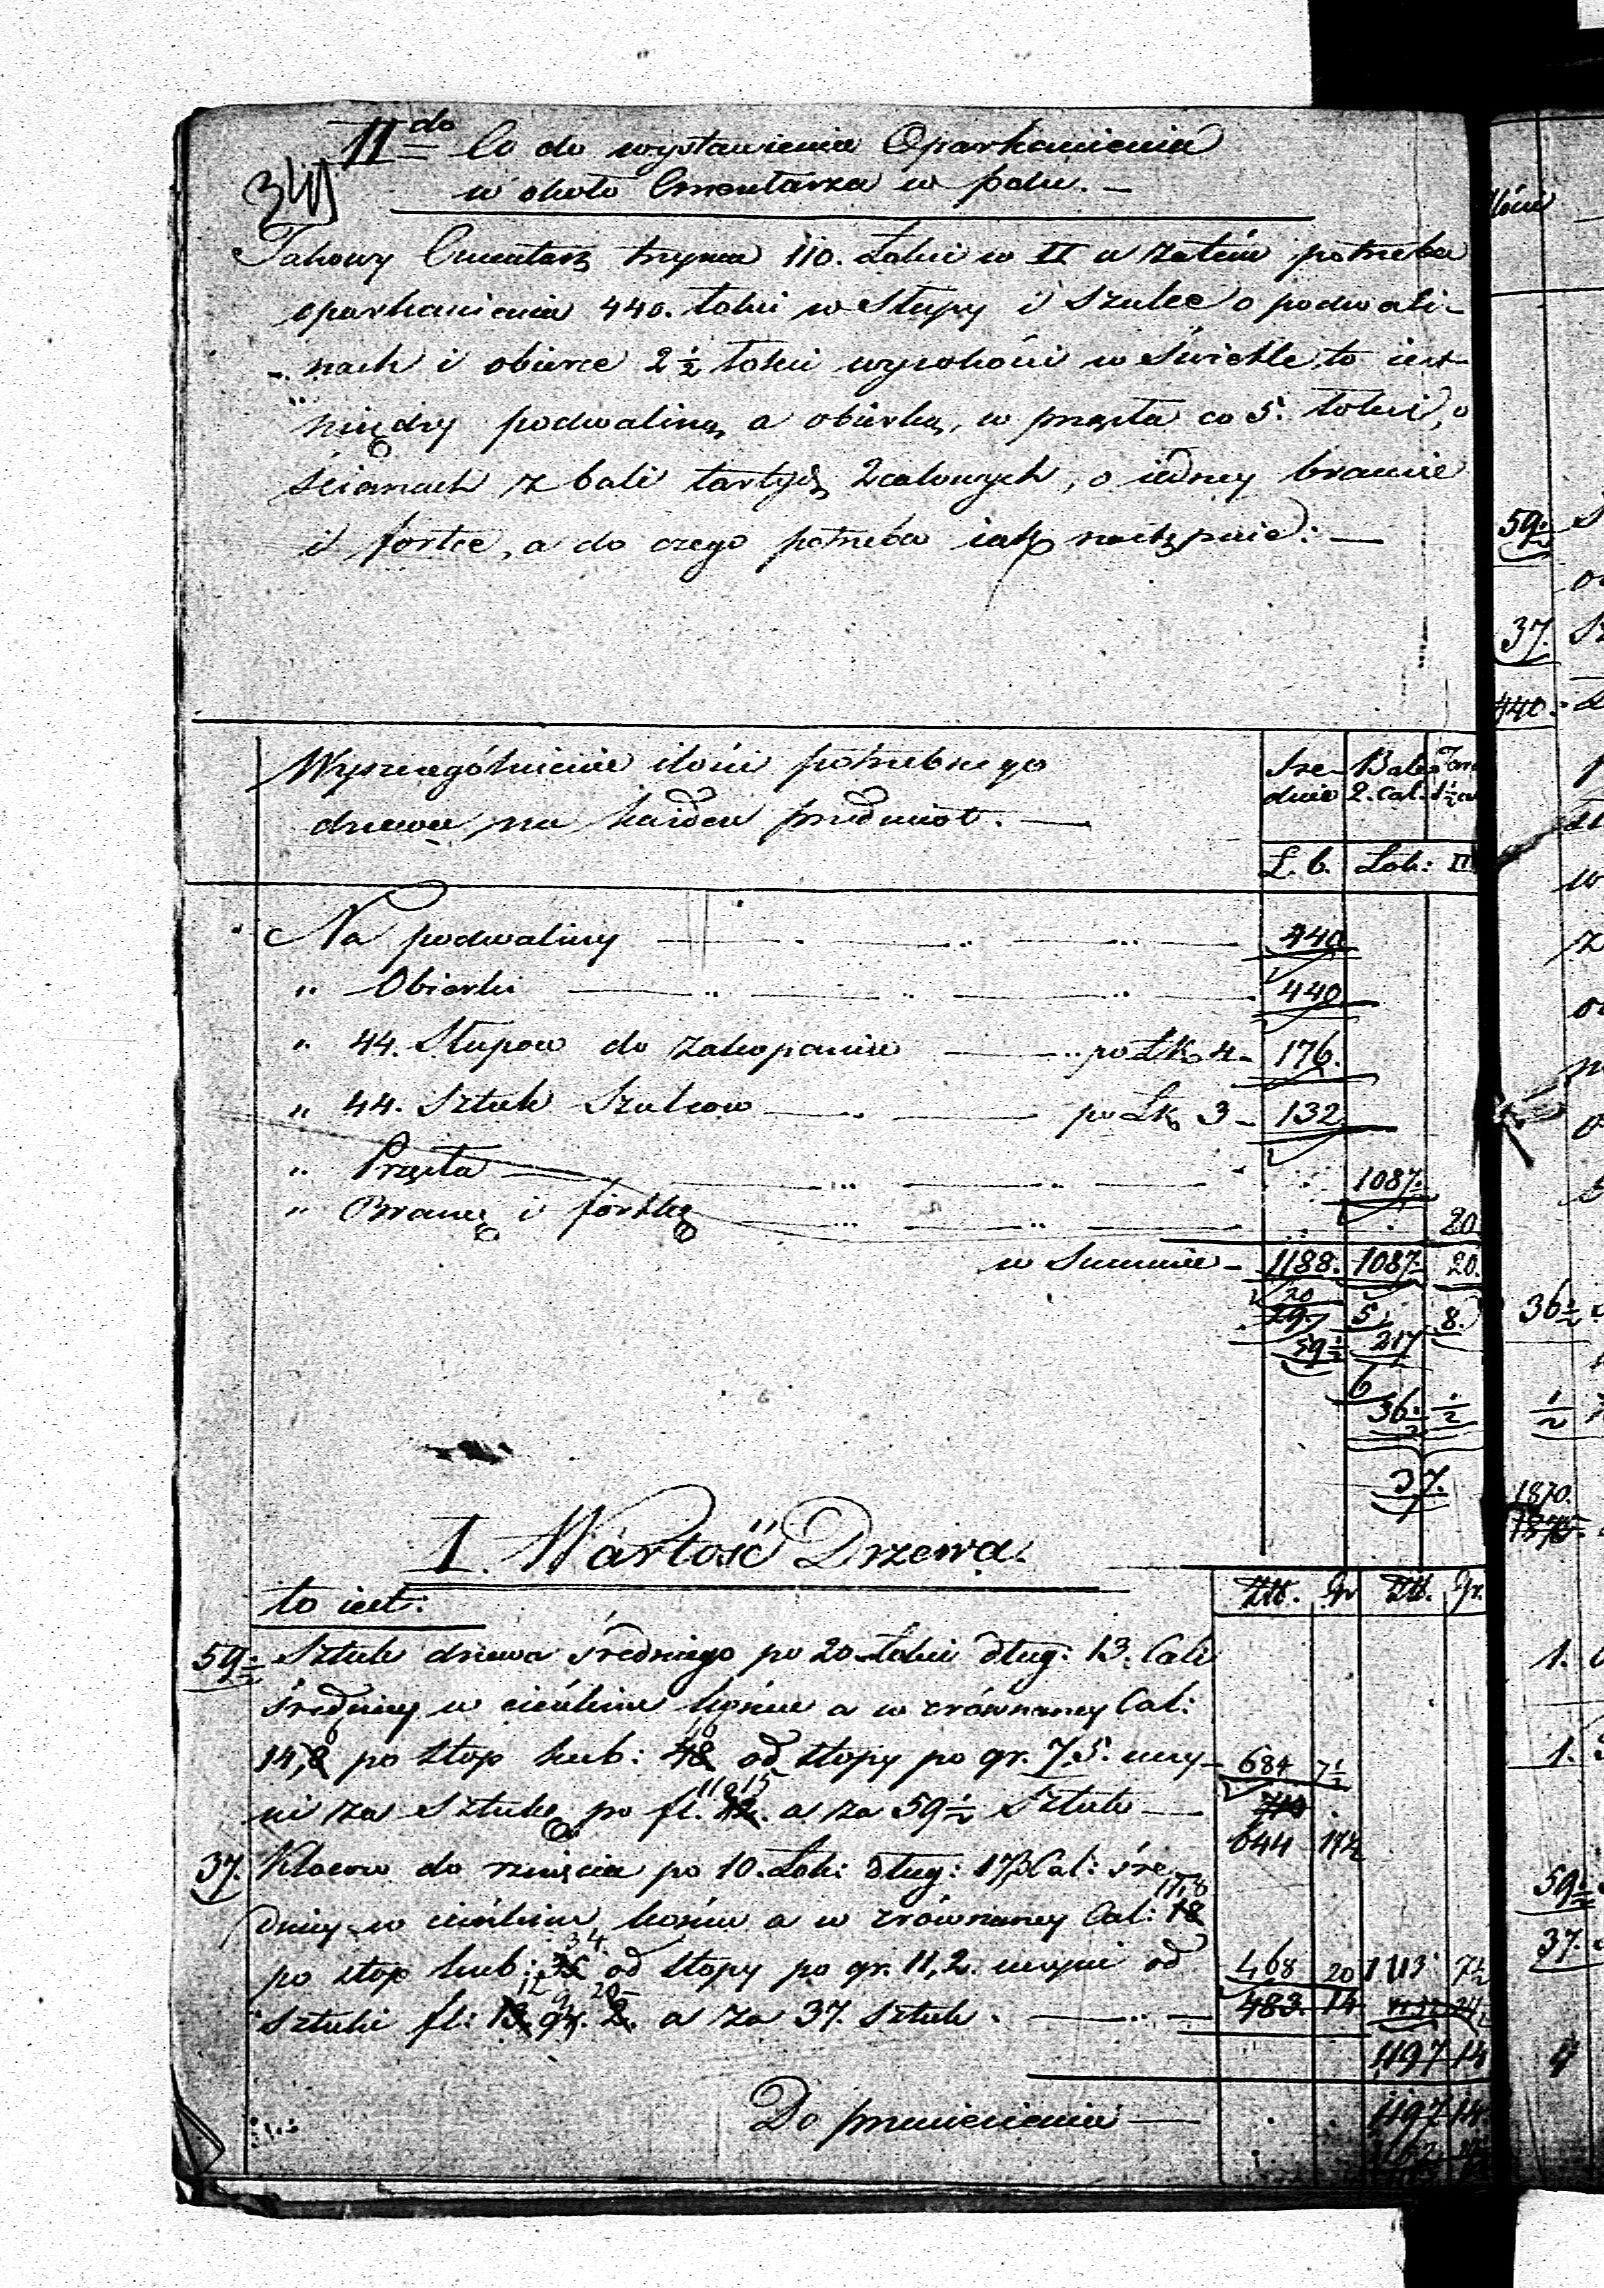 IIdo Co do wystawienia Oparkanienia
w około Cmentarza w polu. —
341
Takowy Cmentarz trzyma 110. Łokci w II a zatém potrzeba
oparkanienia 440. łokci w Słupy i Szulce o podwali-
nach i obierce 2 1/2 łokci wysokości w świetle, to iest
między podwaliną a obierką, w przęsła co 5. łokci, o
ścianach z bali tartych 2calowych, o iedney bramie
i fortce, a do czego potrzeba iak następuie: —
Wyszczególnienie ilości potrzebnego
drzewa na każden przedmiot. —
Sre-
dnie
Bale
2. cal.
1 1/2
Ł. b. Łok: II
Na podwaliny — 440
" Obierki — 440
" 44. Słupow do zakopania — po Łk. 4 — 176.
" 44. Sztuk Szulcow — po Łk. 3 — 132
" Przęsła — 1087.
" Bramę i fortkę — 20
w Summie — 1188. 1087. 20.
20
5 8.
59 1/2 217
6
36 1/2 1/2
37.
I. Wartość Drzewa.
to iest:
Złł. Gr Złł. Gr.
59 1/2 Sztuk drzewa średniego po 20 Łokci dług: 13. Cali
średnicy w cieńkim końcu a w zrównaney Cal:
14,8 po stop kub: 48 od stopy po gr. 7,5. uczy- 684 7 1/2
ni za Sztukę po fl. 12. a za 59 1/2 Sztuk —
11 15
644
37. Klocow do rznięcia po 10. Łok: dług: 17 Cal: śre
dnicy w cieńkim końcu a w zrównaney Cal: 18
17,8
po stop kub: 36 od stopy po gr. 11,2. uczyni od 468 20 1113 7 1/2
34.
sztuki fl: 13 gr. 2. a za 37. Sztuk. — 483. 14
12 20
1197 14
Do przeniesienia — 1197 14.